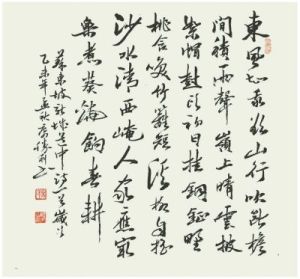 東風知我欲山行吹斷檐
間積雨聲嶺上晴雲披
絮帽樹頭初日挂銅鉦野
桃含笑竹籬短溪柳自搖
沙水清西崦人家應最
樂煮葵燒筍餉春耕
蘇東坡新城道中詩一首歲次
乙未年孟秋